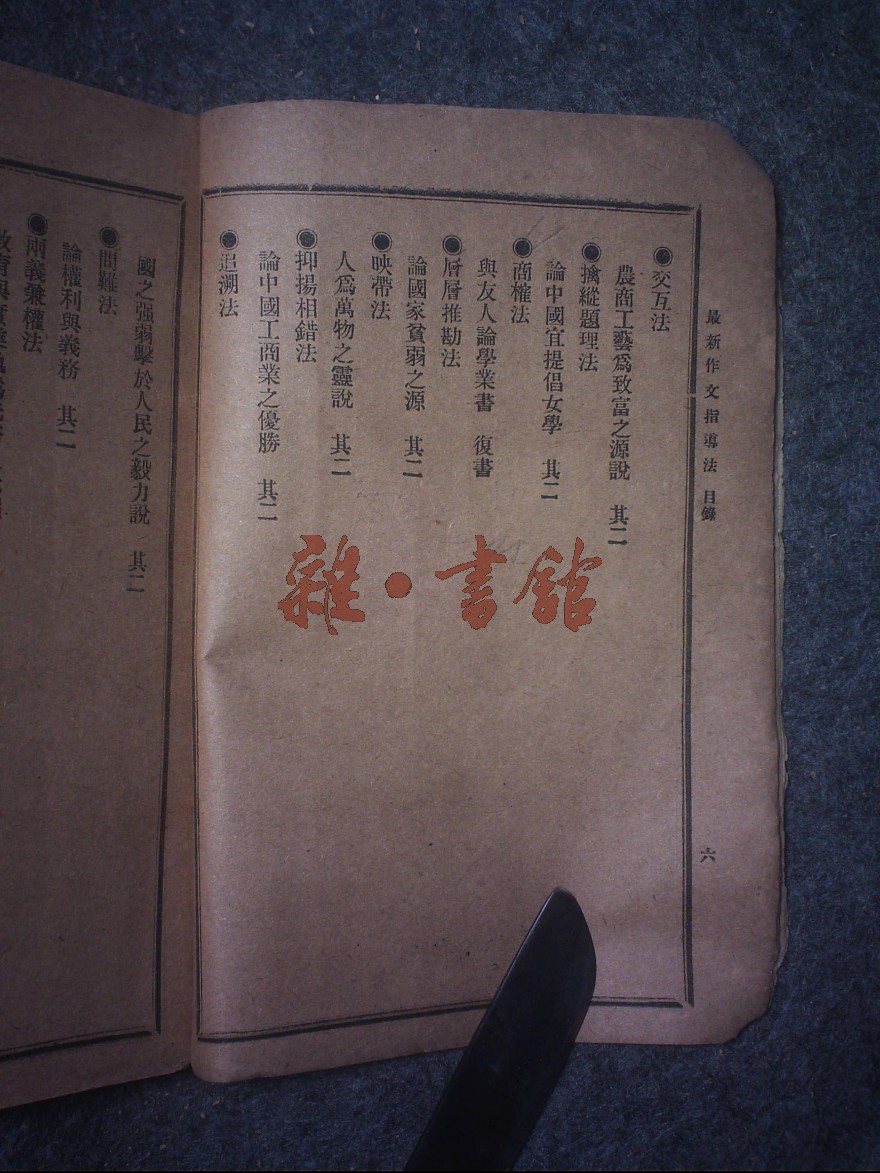 最新作文指導法 目錄
六
●交互法
農商工藝爲致富之源說 其二
●擒縱題理法
論中國宜提倡女學 其二
●商榷法
與友人論學業書 復書
●層層推勘法
論國家貧弱之源 其二
●映帶法
人爲萬物之靈說 其二
●抑揚相錯法
論中國工商業之優勝 其二
●追溯法
國之强弱繫於人民之毅力說 其二
●問難法
論權利與義務 其二
●兩義兼權法
雜·書館